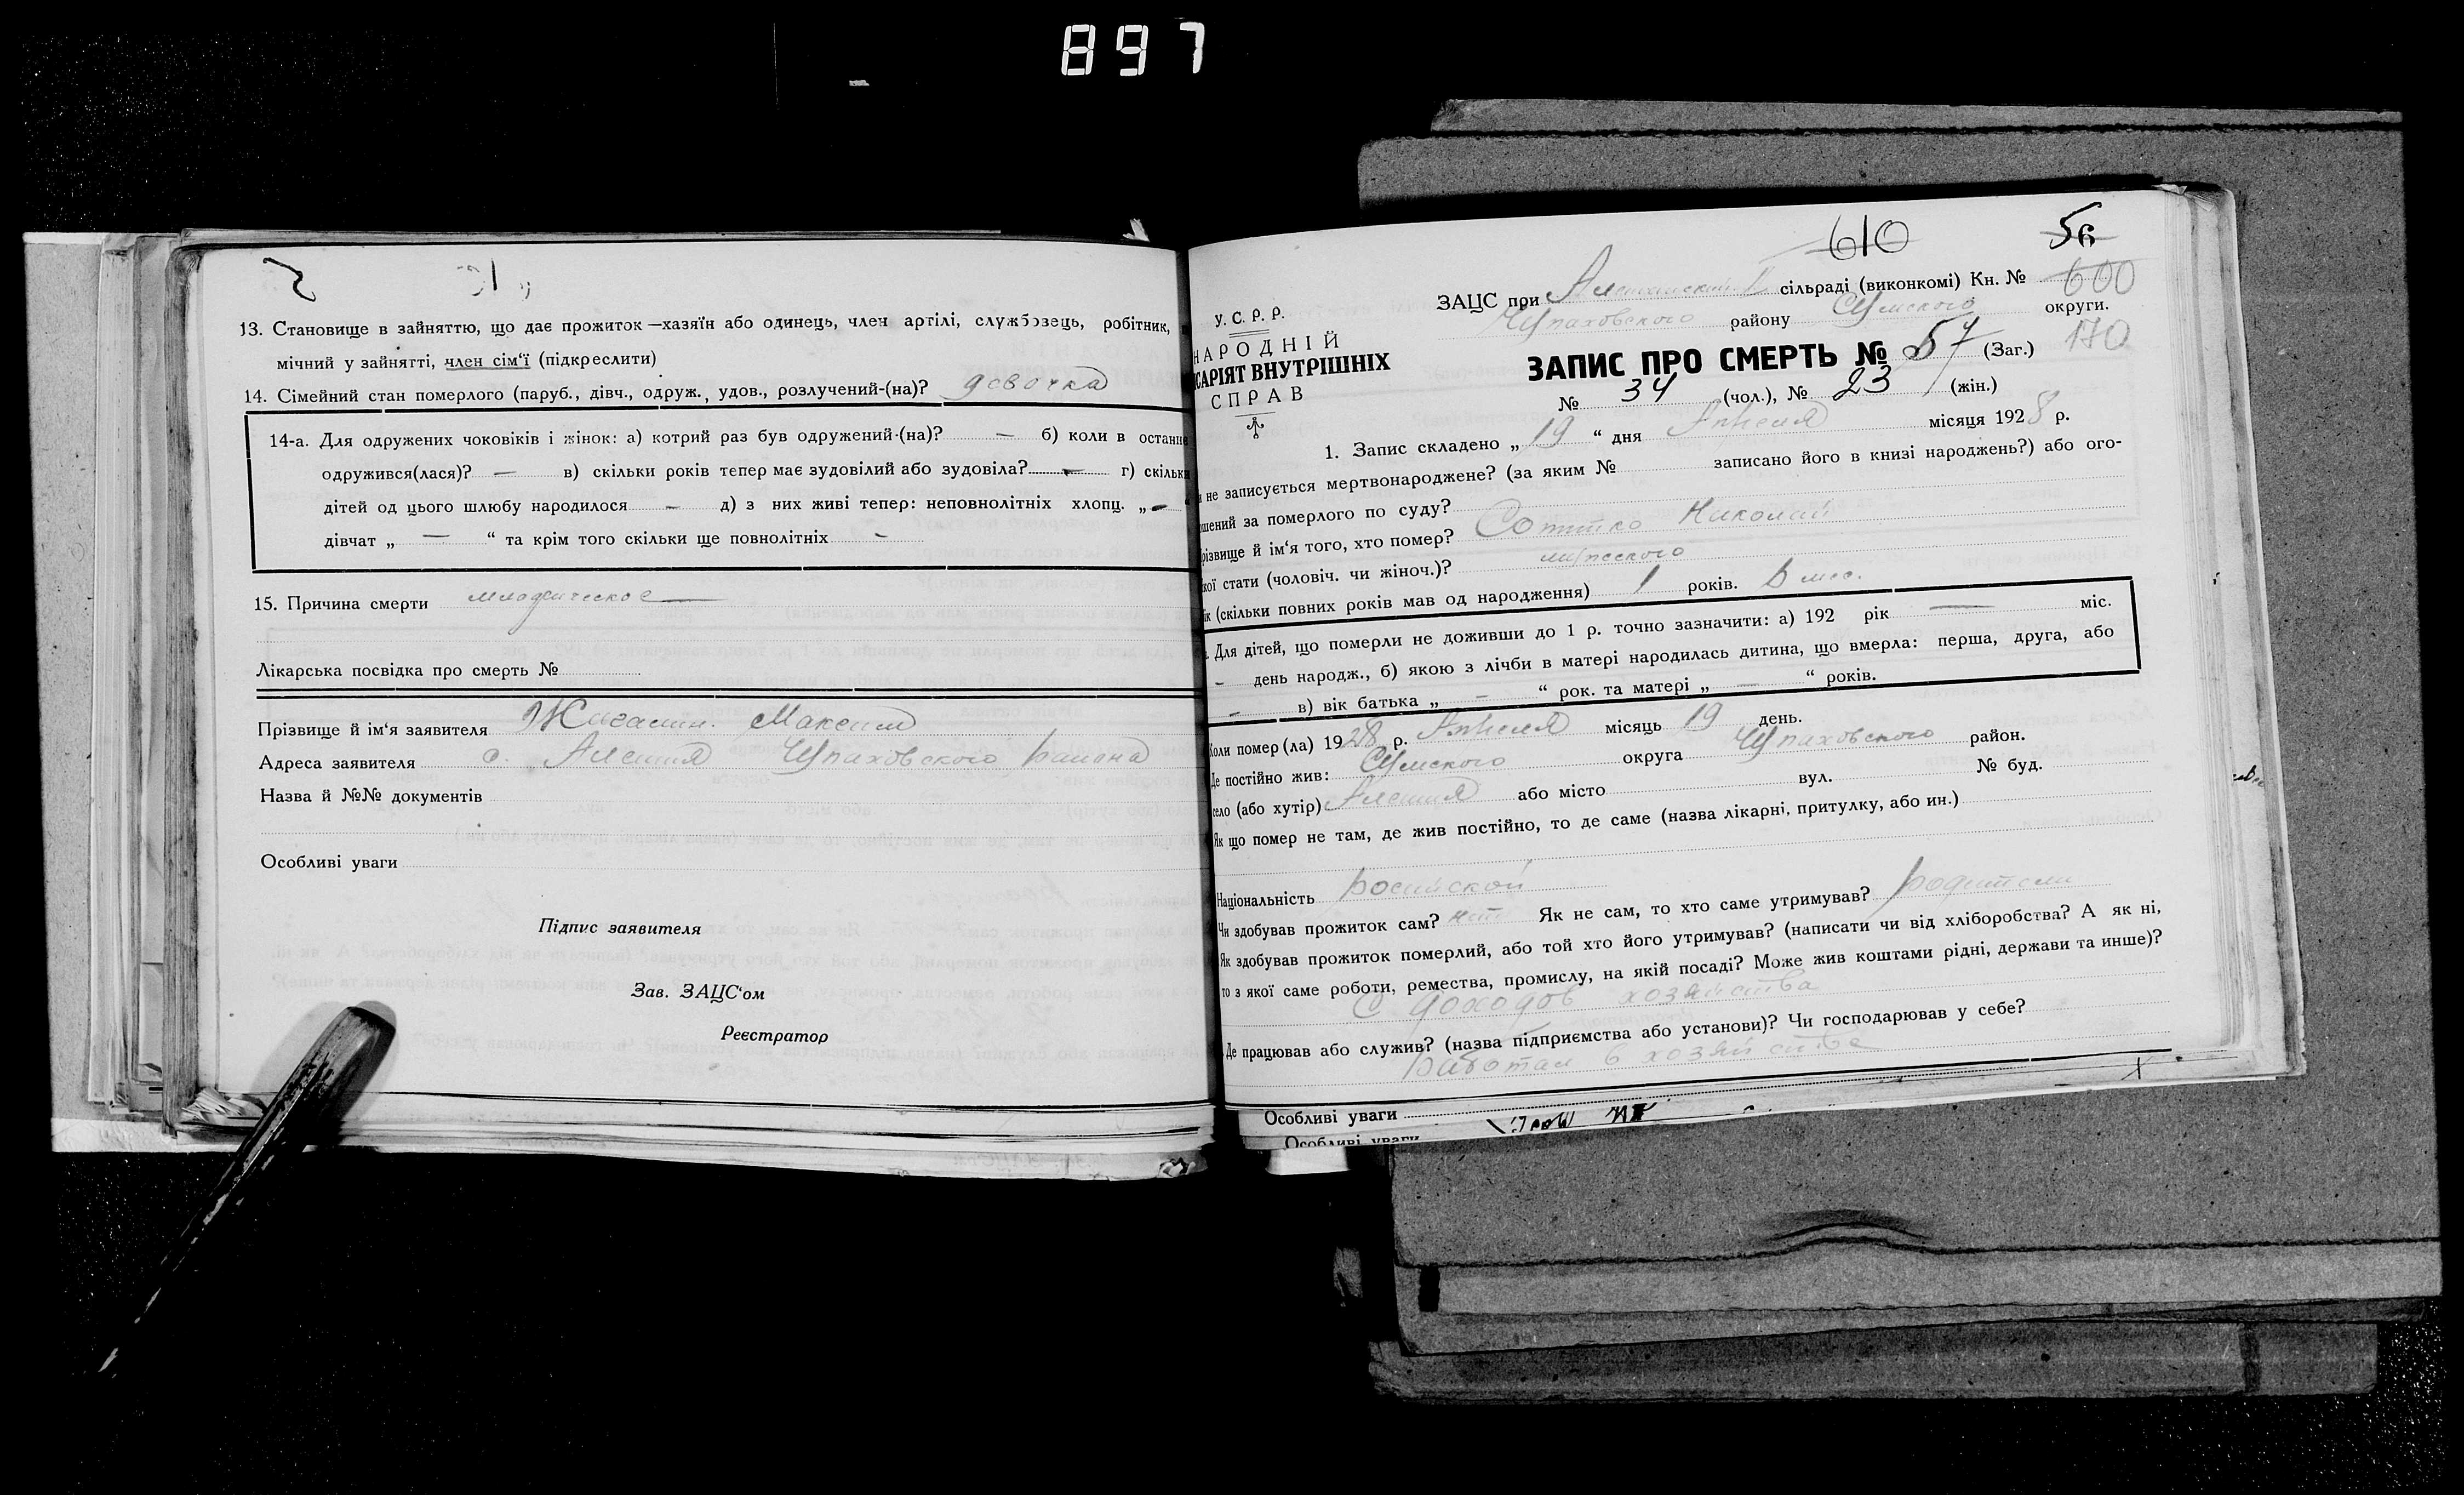 897
13. Становище в зайняттю, що дає прожиток—хазяїн або одинець, член артілі, службовець, робітник,
мічний у зайнятті, член сім'ї (підкреслити)
14. Сімейний стан померлого (паруб., дівч., одруж., удов., розлучений-(на)? девочка
14-а. Для одружених чоковіків і жінок: а) котрий раз був одружений-(на)? — б) коли в останнє
одружився(лася)? — в) скільки років тепер має зудовілий або зудовіла? — г) скільки
дітей од цього шлюбу народилося — д) з них живі тепер: неповнолітніх хлопц. „ —
дівчат „ — “ та крім того скільки ще повнолітніх -
15. Причина смерти младенческое
Лікарська посвідка про смерть №
Прізвище й ім'я заявителя Максим
Адреса заявителя с. Алешня Чупаховского района
Назва й №№ документів
Особливі уваги
Підпис заявителя
Зав. ЗАЦС'ом
Реєстратор
610 56
ЗАЦС при сільраді (виконкомі) Кн. № 600
Чупаховского району Сумского округи.
170
У. С. Р. Р.
НАРОДНІЙ
САРІЯТ ВНУТРІШНІХ
СПРАВ
ЗАПИС ПРО СМЕРТЬ № 57 (Заг.)
№ 34 (чол.), № 23 (жін.)
1. Запис складено „ 19 “ дня Апреля місяця 1928 р.
не записується мертвонароджене? (за яким № записано його в книзі народжень?) або ого-
шений за померлого по суду?
різвище й ім'я того, хто помер? Николай
кої стати (чоловіч. чи жіноч.)? мужского
ік (скільки повних років мав од народження) 1 років. 6 мес.
Для дітей, що померли не доживши до 1 р. точно зазначити: а) 192 рік — міс.
- день народж., б) якою з лічби в матері народилась дитина, що вмерла: перша, друга, або
- в) вік батька „ — “ рок. та матері „ — “ років.
Коли помер (ла) 1928 р. Апреля місяць 19 день.
Де постійно жив: Сумского округа Чупаховского район.
село (або хутір) Алешня або місто вул. № буд.
Як що помер не там, де жив постійно, то де саме (назва лікарні, притулку, або ин.)
Національність Российской
Чи здобував прожиток сам? нет Як не сам, то хто саме утримував? родители
Як здобував прожиток померлий, або той хто його утримував? (написати чи від хліборобства? А як ні,
то з якої саме роботи, ремества, промислу, на якій посаді? Може жив коштами рідні, держави та инше)?
С доходов хозяйства
Де працював або служив? (назва підприємства або установи)? Чи господарював у себе?
Работал в хозяйстве
Особливі уваги
Особливі уваги